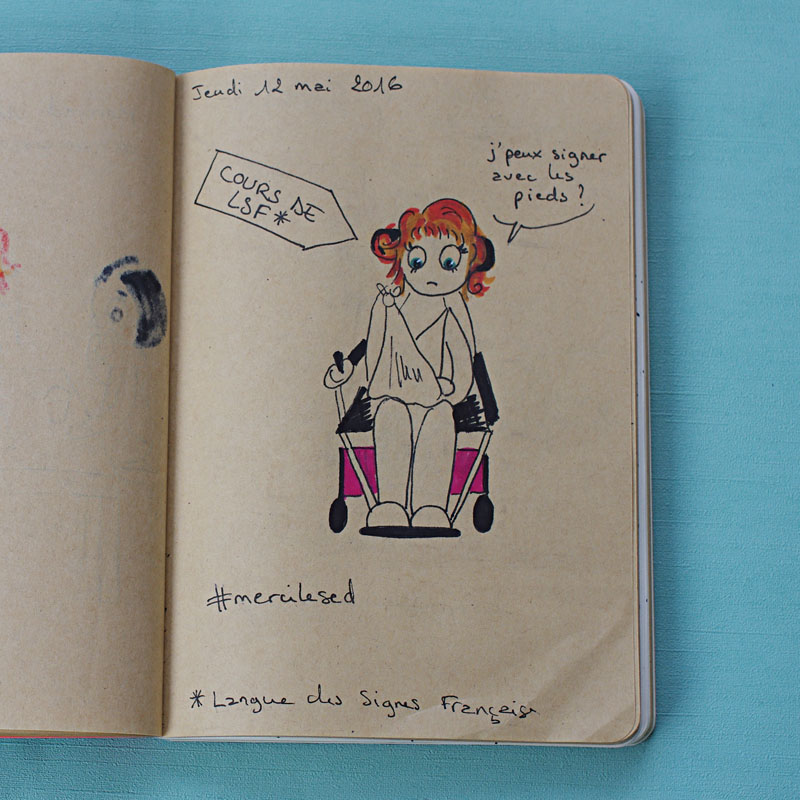 Jeudi 12 mai 2016
j'peux signer
avec les
pieds ?
COURS DE
LSF*
#mercilesed
* Langue des Signes Française